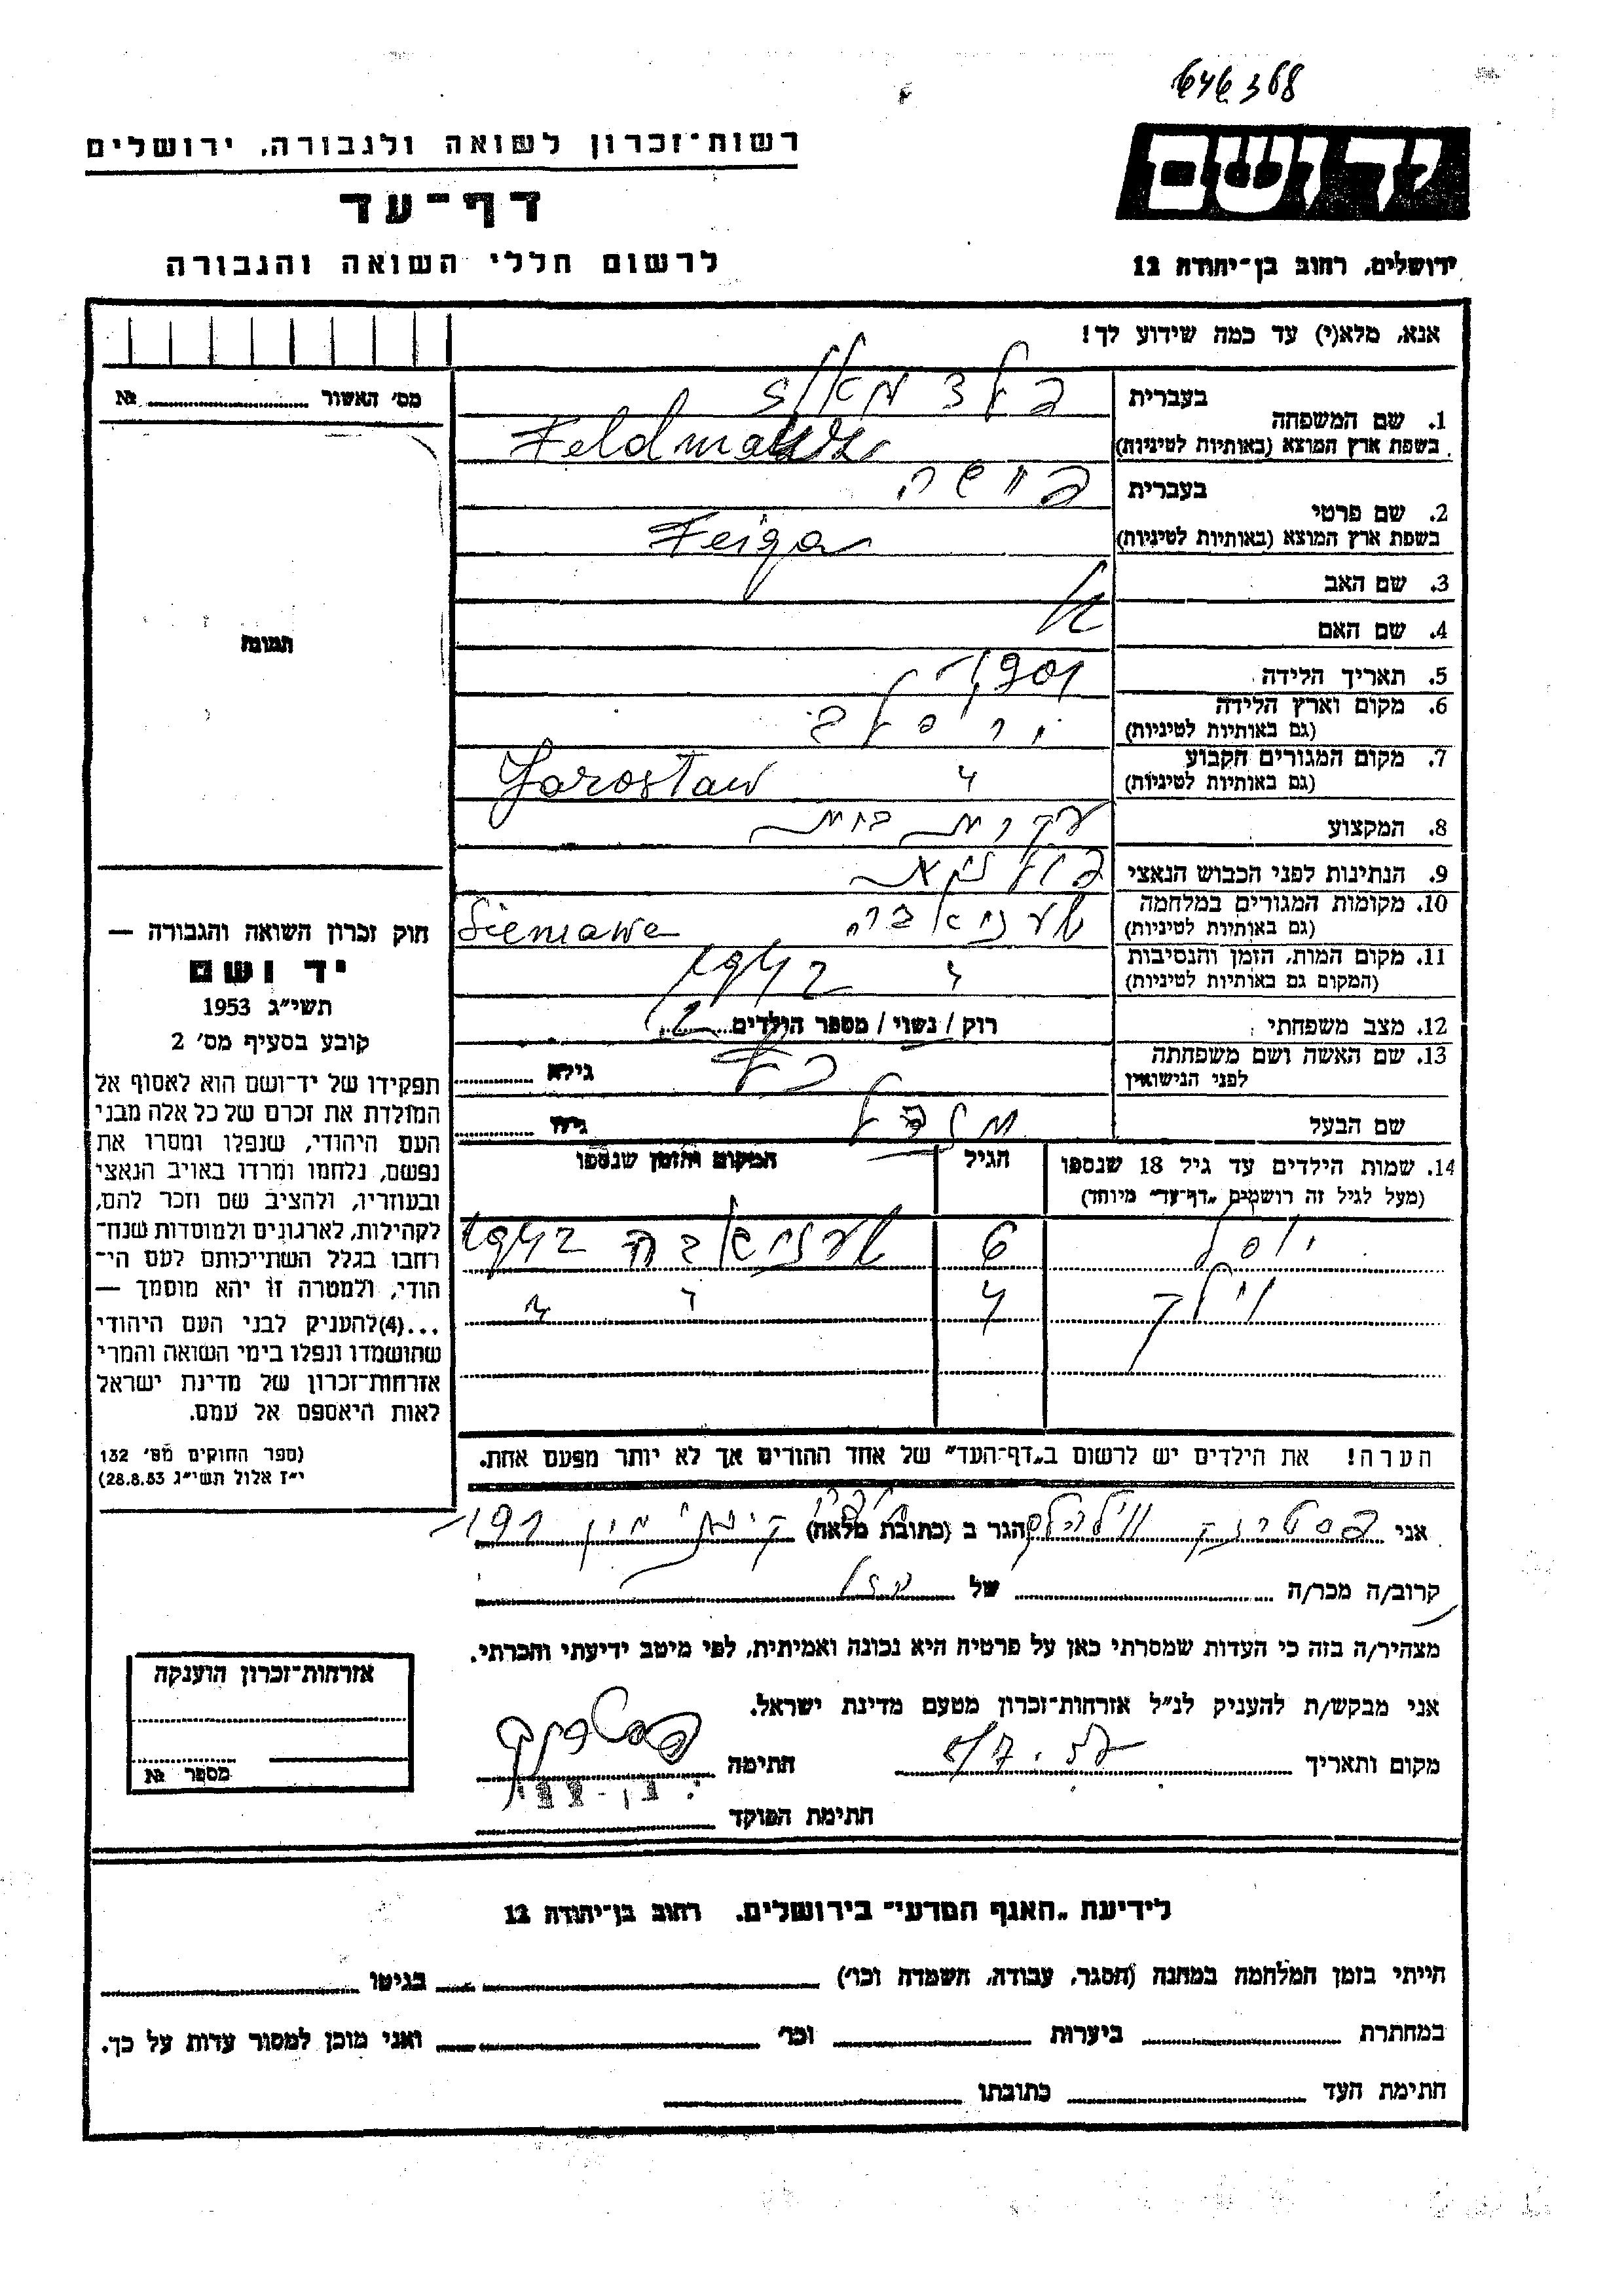 646368
רשות־זכרון לשואה ולגבורה, ירושלים
דף־עד
לרשום חללי השואה והגבורה
יד ושם
ירושלים, רחוב בן־יהודה 12
אנא, מלא(י) עד כמה שידוע לך!
מס' האשור № 
תמונה
חוק זכרון השואה והגבורה —
יד ושם
תשי"ג 1953
קובע בסעיף מס' 2
תפקידו של יד־ושם הוא לאסוף אל
המולדת את זכרם של כל אלה מבני
העם היהודי, שנפלו ומסרו את
נפשם, נלחמו ומרדו באויב הנאצי
ובעוזריו, ולהציב שם וזכר להם,
לקהילות, לארגונים ולמוסדות שנח־
רבו בגלל השתייכותם לעם הי־
הודי, ולמטרה זו יהא מוסמך —
...(4)להעניק לבני העם היהודי
שהושמדו ונפלו בימי השואה והמרי
אזרחות־זכרון של מדינת ישראל
לאות היאספם אל עמם.
(ספר החוקים מס' 132
י"ז אלול תשי"ג 28.8.53)
1. שם המשפחה
בעברית פלדמאן
בשפת ארץ המוצא (באותיות לטיניות) Feldman
2. שם פרטי
בעברית
בשפת ארץ המוצא (באותיות לטיניות) Feiga
3. שם האב
4. שם האם
5. תאריך הלידה 1901
6. מקום וארץ הלידה
(גם באותיות לטיניות) ירסלב
7. מקום המגורים הקבוע
(גם באותיות לטיניות) " Jarosław
8. המקצוע עקרת בית
9. הנתינות לפני הכבוש הנאצי
10. מקומות המגורים במלחמה
(גם באותיות לטיניות) שעניאבה Sieniawa
11. מקום המות, הזמן והנסיבות
(המקום גם באותיות לטיניות) " 1942
12. מצב משפחתי רוק / נשוי / מספר הילדים 2
13. שם האשה ושם משפחתה
לפני הנישואין גילא
שם הבעל גילו
14. שמות הילדים עד גיל 18 שנספו
(מעל לגיל זה רושמים "דף־עד" מיוחד)
הגיל
המקום והזמן שנספו
יוסל 6 שעניאבה 1942
4 " "
הערה! את הילדים יש לרשום ב"דף־העד" של אחד ההורים אך לא יותר מפעם אחת.
אני פסטרנק הגר ב (כתובת מלאה) 191
קרוב/ה מכר/ה של
מצהיר/ה בזה כי העדות שמסרתי כאן על פרטיה היא נכונה ואמיתית, לפי מיטב ידיעתי והכרתי.
אני מבקש/ת להעניק לנ"ל אזרחות־זכרון מטעם מדינת ישראל.
מקום ותאריך חתימה
חתימת הפוקד
אזרחות־זכרון הוענקה
מספר №
לידיעת "האגף המדעי" בירושלים, רחוב בן־יהודה 12
הייתי בזמן המלחמה במחנה (הסגר, עבודה, השמדה וכו') בגיטו
במחתרת ביערות וכו' ואני מוכן למסור עדות על כך.
חתימת העד כתובתו